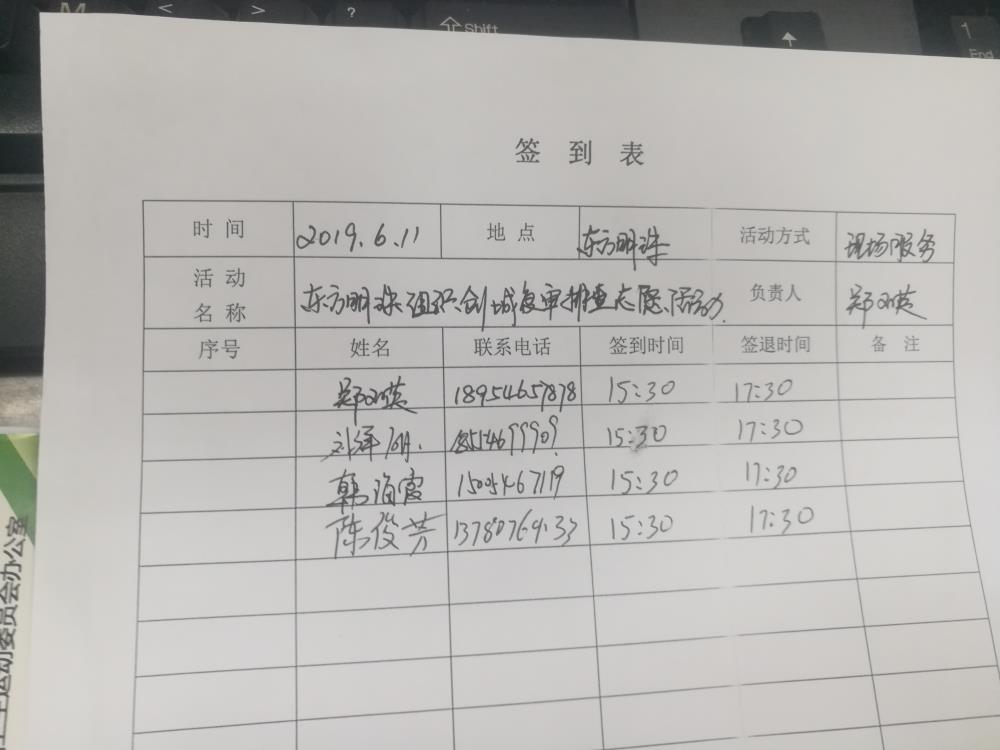 M < > ? Shift 1 End
签 到 表
时 间 2019.6.11 地 点 东方明珠 活动方式 现场服务
活 动 名 称 东方明珠组织创城复审排查志愿活动 负责人 郑双英
序号 姓名 联系电话 签到时间 签退时间 备 注
郑双英 18954657878 15:30 17:30
15:30 17:30
韩海霞 1505467119 15:30 17:30
陈俊芳 15:30 17:30
卫生运动委员会办公室